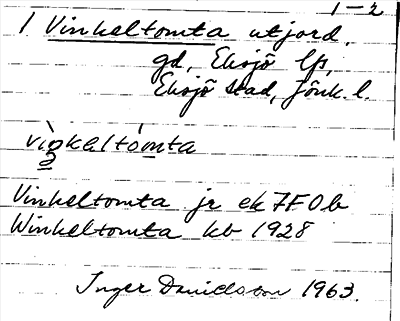 1-2
1 Vinkeltomta utjord,
gd, Eksjö lfs,
Eksjö stad, Jönk. l.
viŋkəltòmta
Vinkeltomta jr ek 7F0b
Winkeltomta kb 1928
Inger Danielsson 1963.